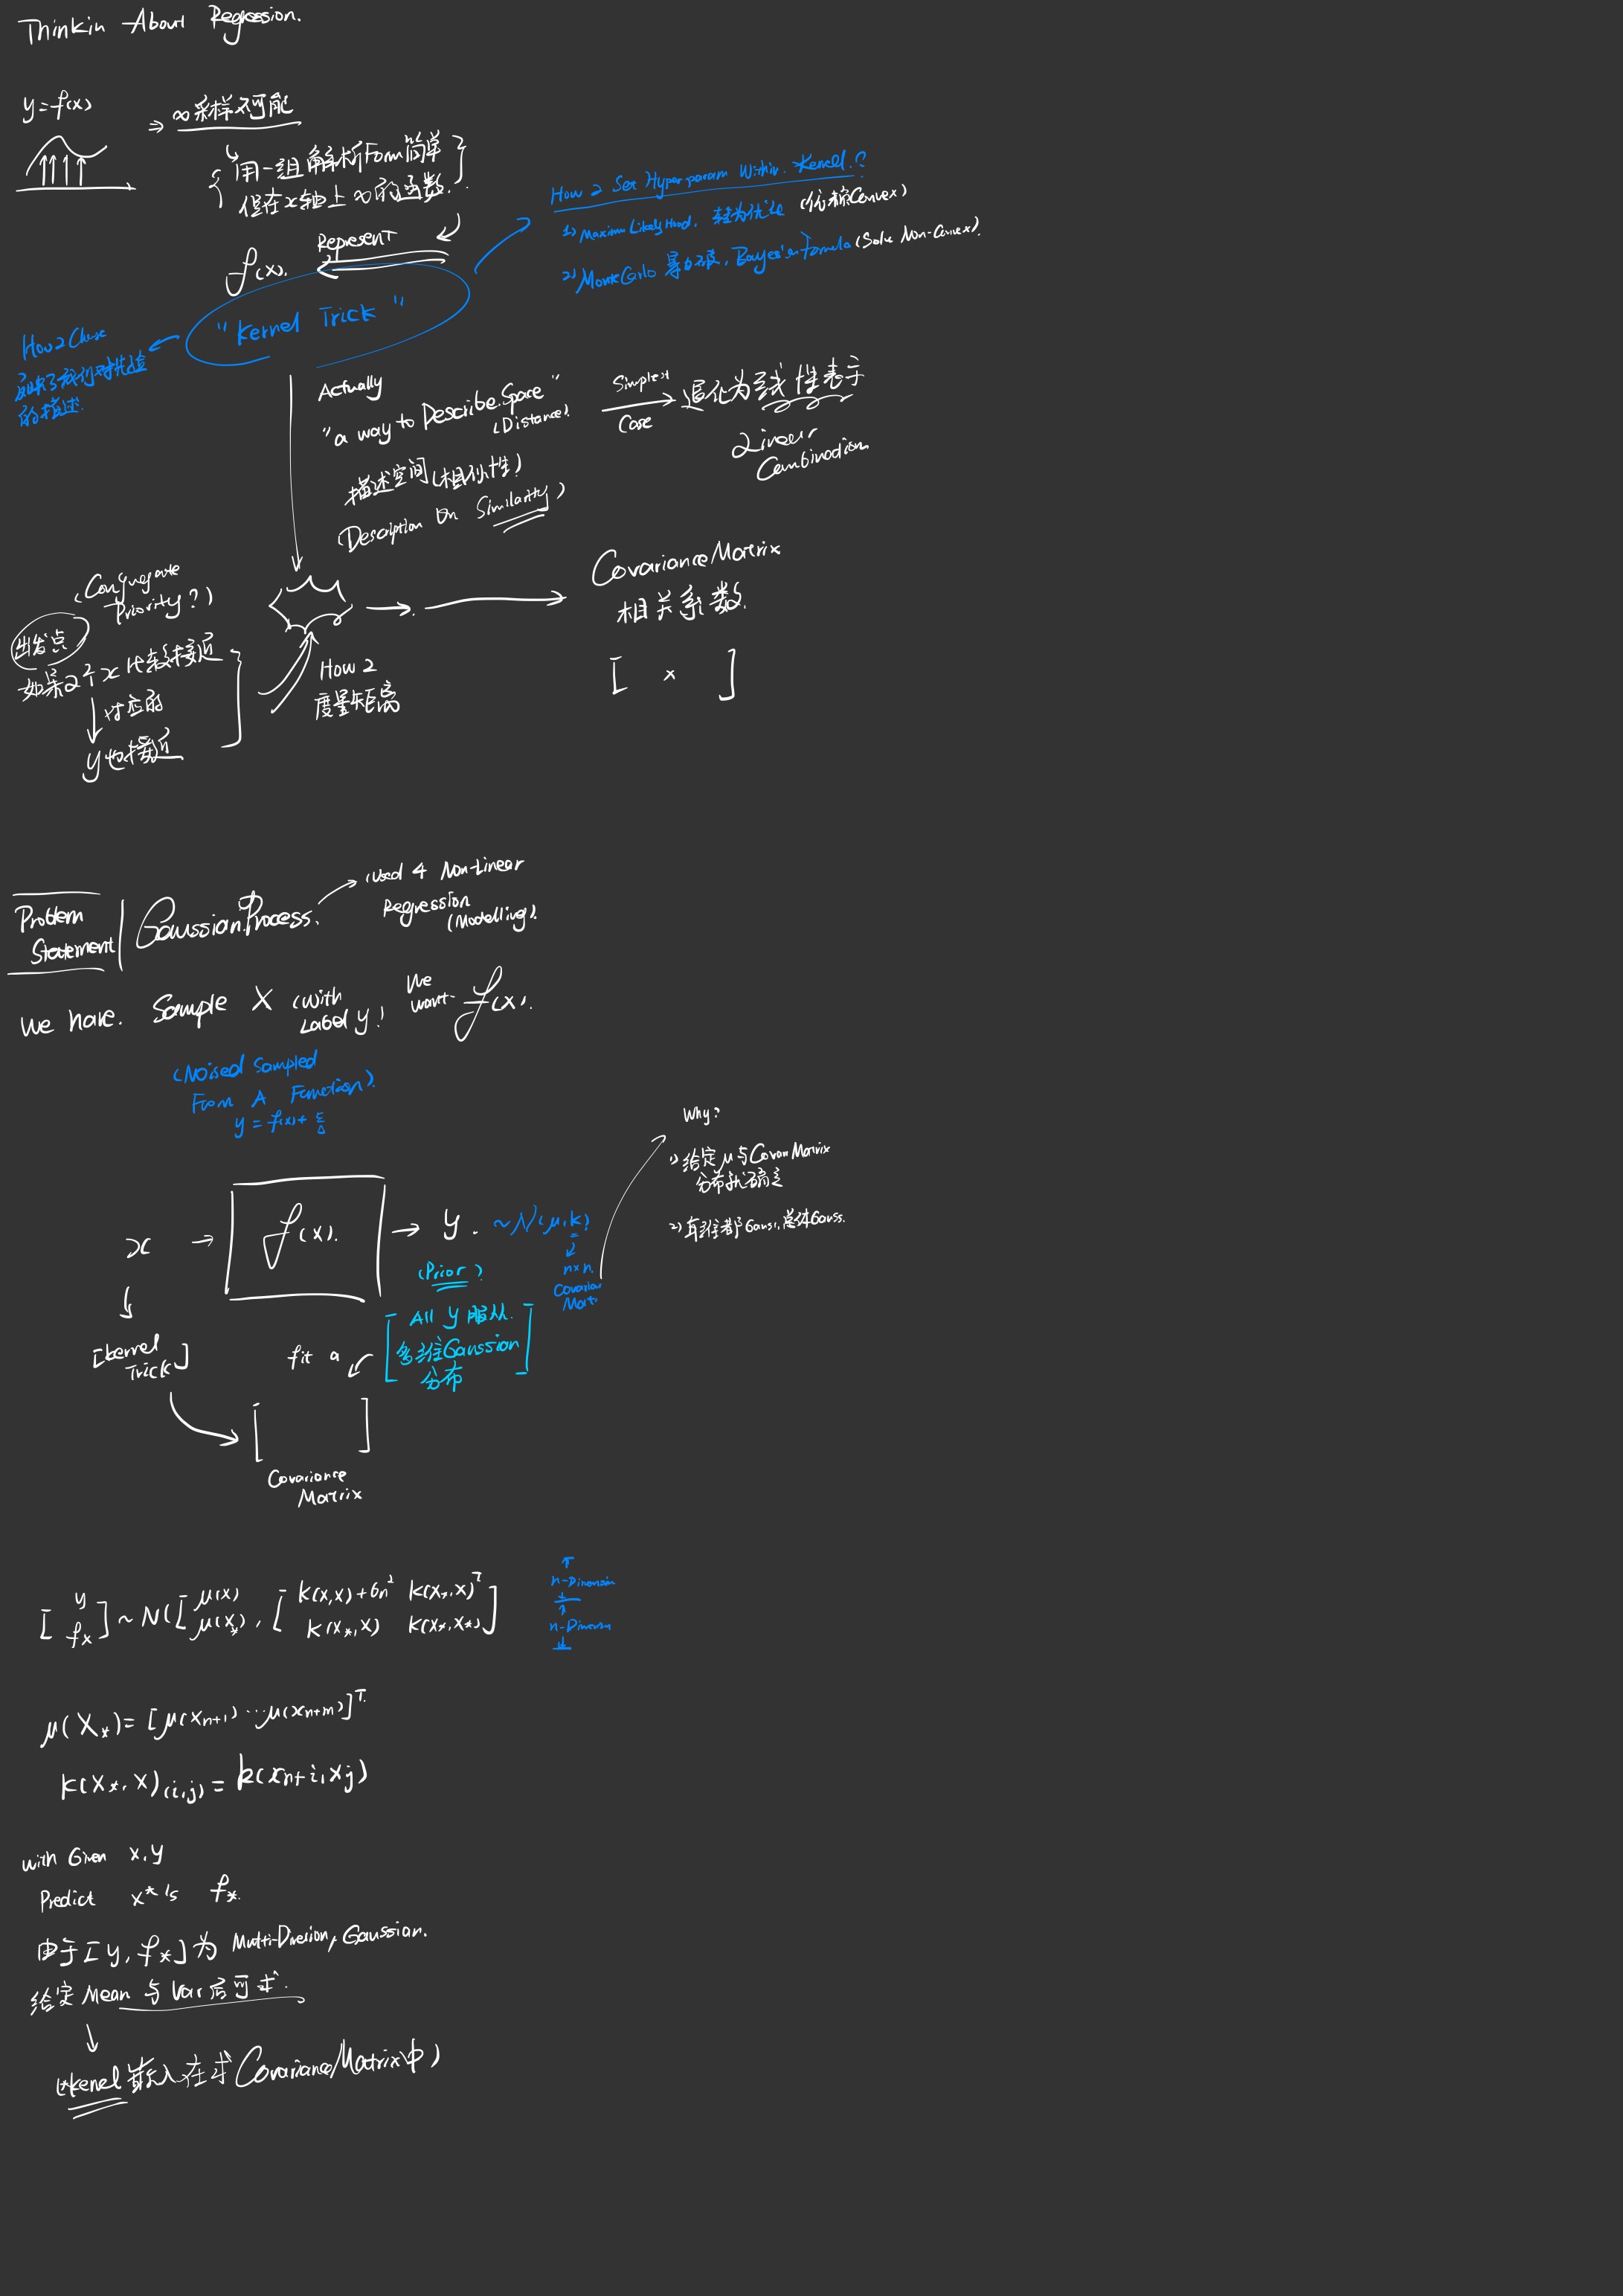 Thinkin About Regression.
y=f(x)
⇒ ∞采样不可能
用一组解析Form简单
但在x轴上∞的函数.
Represent
f(x).
"Kernel Trick"
How 2 Set Hyperparam Within Kernel?
1) Maximum Likelyhood. 转为优化 (依赖Convex)
2) MonteCarlo 暴力 Bayes'en Formula (Solve Non-Convex).
How 2 Choose
反映了我们对先验
的描述.
Actually
"a way to Describe Space"
(Distance).
描述空间(相似性)
(Description On Similarity)
Simplest
Case
退化为线性表示
Linear
Combination
(Conjugate
Priority?)
出发点
如果2个x比较接近
对应的
y也接近
How 2
度量距离
Covariance Matrix
相关系数.
[ x ]
Problem
Statement
Gaussian Process.
(Used 4 Non-Linear
Regression
(Modelling).
We have. Sample X (with
Label y)
We
want f(x).
(Noised Sampled
From A Function).
y = f(x) + ε
x → f(x). → y. ~N(μ, k)
n×n.
Covarian
Mat.
Why?
1) 给定μ与Covar Matrix
分布就确定
2) 每维都Gauss, 总体Gauss.
(Prior)
All y 服从.
多维Gaussian
分布
[kernel
Trick]
fit a
Covariance
Matrix
[y f*] ~ N([μ(x) μ(x*)], [k(x,x)+σn² k(x*,x)^T k(x*,x) k(x*,x*)]
n-Dimension
n-Dimension
μ(X*) = [μ(xn+1)···μ(xn+m)]^T.
k(X*,X)(i,j) = k(xn+i, xj)
with Given x.y
Predict x*'s f*.
由于[y, f*]为 Multi-Dimension Gaussian.
给定Mean与Var后可求.
(*kernel嵌入在求Covariance Matrix中)